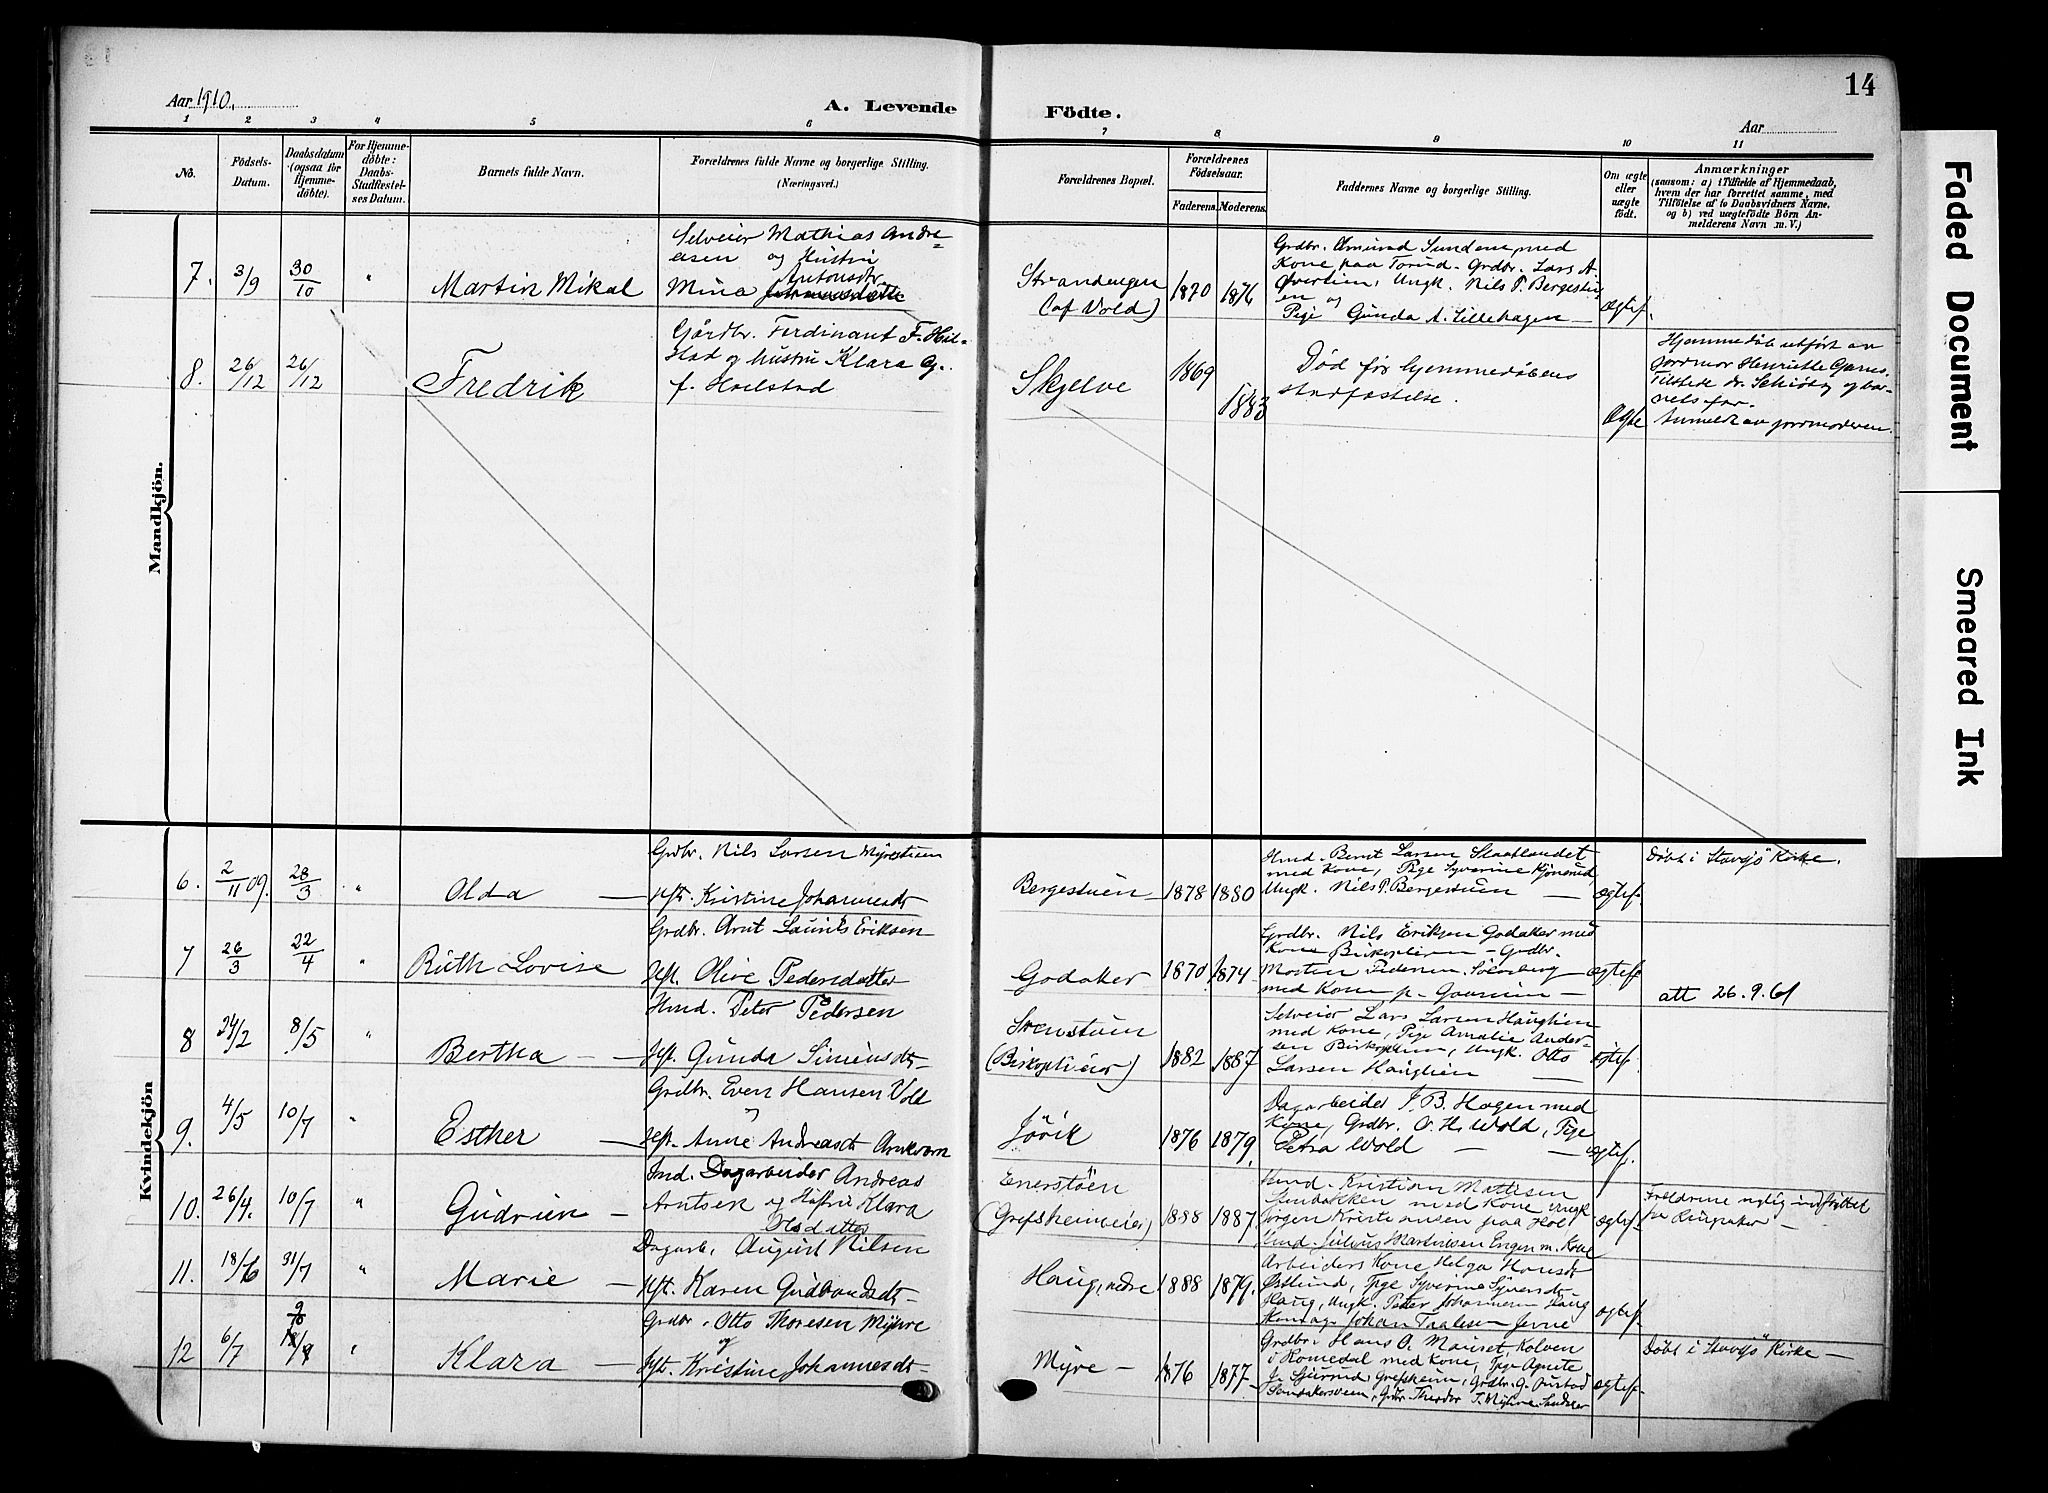 14
Aar 1910.
A. Levende Födte.
Aar
1 2 3 4 5 6 7 8 9 10 11
No.
Födsels-
Datum.
Daabsdatum
(ogsaa for
Hjemme-
döbte).
For Hjemme-
döbte:
Daabs-
Stadfæstel-
ses Datum.
Barnets fulde Navn.
Forældrenes fulde Navne og borgerlige Stilling.
(Næringsvei.)
Forældrenes Bopæl.
Forældrenes
Födselsaar.
Faderens. Moderens.
Faddernes Navne og borgerlige Stilling.
Om ægte
eller
uægte
födt.
Anmærkninger
(saasom: a) i Tilfælde af Hjemmedaab,
hvem der har forrettet samme, med
Tilföielse af to Daabsvidners Navne,
og b) ved uægtefödte Börn An-
melderens Navn m. V.)
Mandkjön.
7. 3/9 30/10 "
Martin Mikal
Selveier Mathias Andre-
asen og Hustru
Antonsdtr
Mina
Strandengen
(af Vold)
1870 1876
Grdbr. Amund Sunden med
Kone paa Torud. Grdbr. Lars A.
Øverlien, Ungk. Nils P. Bergestu-
en og
Pige Gunda A. Lillehagen
Ægtef.
8. 26/12 26/12
Fredrik
Gårdbr. Ferdinant F. Hoel-
stad og hustru Klara G.
f. Hoelstad
Skjelve
1869
1883
Død før hjemmedåbens
stadfæstelse.
Ægte
Hjemmedåb utført av
jordmor Henriette
Tilstede dr. Schiötz og bar-
nets far.
Anmeldt av jordmoderen.
Kvindekjön
6. 2/11 09. 28/3 "
Olda
Grdbr. Nils Larsen Myrestuen
Hft. Kristine Johannesdt
Bergestuen 1878 1880
Hmd. Bernt Larsen Staallandet
med Kone, Pige Syverine
Ungk. Nils P. Bergestuen
ægtef.
Døbt i Stavsjö Kirke.
7 26/3 22/4 "
Ruth Lovise
Grdbr. Arnt Laurits Eriksen
Hft. Olive Pedersdatter
Godaker 1870 1874
Grdbr. Nils Eriksen Godaker med
Kone Birkeplien - Grdbr.
Morten Pedersen Solberg
med Kone p.
ægtef
att 26.9.61
8 24/2 8/5 "
Bertha
Hmd. Peter Pedersen
Hft. Gunda Simensdt
Stenstuen
(Birkeplieier)
1882 1887
Selveier Lars Larsen Hauglien
med Kone, Pige Amalie Ander-
sen Birkeplien, Ungk. Otto
Larsen Hauglien
ægtef.
9. 4/5 10/7 "
Esther
Grdbr. Even Hansen Vold
Hft. Anne Andreasdt Arnkværn
Jövik 1876 1879.
Dagarbeider J. B. Hagen med
Kone, Grdbr. O. H. Wold, Pige
Petra Wold
ægtef.
10. 26/4. 10/7 "
Gudrun
Ind. Dagarbeider Andreas
Arntsen og Hustru Klara
Olsdatter
Enerstuen
(Grefsheimeier)
1888 1887
Hmd. Kristian Mathisen
Stenbakken med Kone, Ungk
Jørgen Kristiansen paa Hol,
Hmd. Julius Martinsen Engen m. Kone
ægtef.
Forældrene nylig indflyttet
fra Ringsaker
11. 18/6 31/7 "
Marie
Dagarb. August Nilsen
Hft. Karen Gudbrandsdt
Haug, nedre 1888 1879.
Arbeiders Kone Helga Hansdt
Østlund, Pige Syverine Syversdt
Haug, Ungk. Petter Johannesen Haug
Johan Jevne
ægtef.
12 6/7 9/10 18/9 "
Klara
Grdbr. Otto Thoresen Myhre
og
Hft. Kristine Johannesdt
Myre 1876 1877
Grdbr. Hans O. Mauset, Kolven
i Romedal med Kone, Pige Agnete
J. Sjurud, Grefsheim, Grdbr. G. Austad
Sandakersveen, Grdbr. Theodor T. Myhre, Sandaker
ægtef.
Døbt i Stavsjö Kirke
Faded Document
Smeared Ink